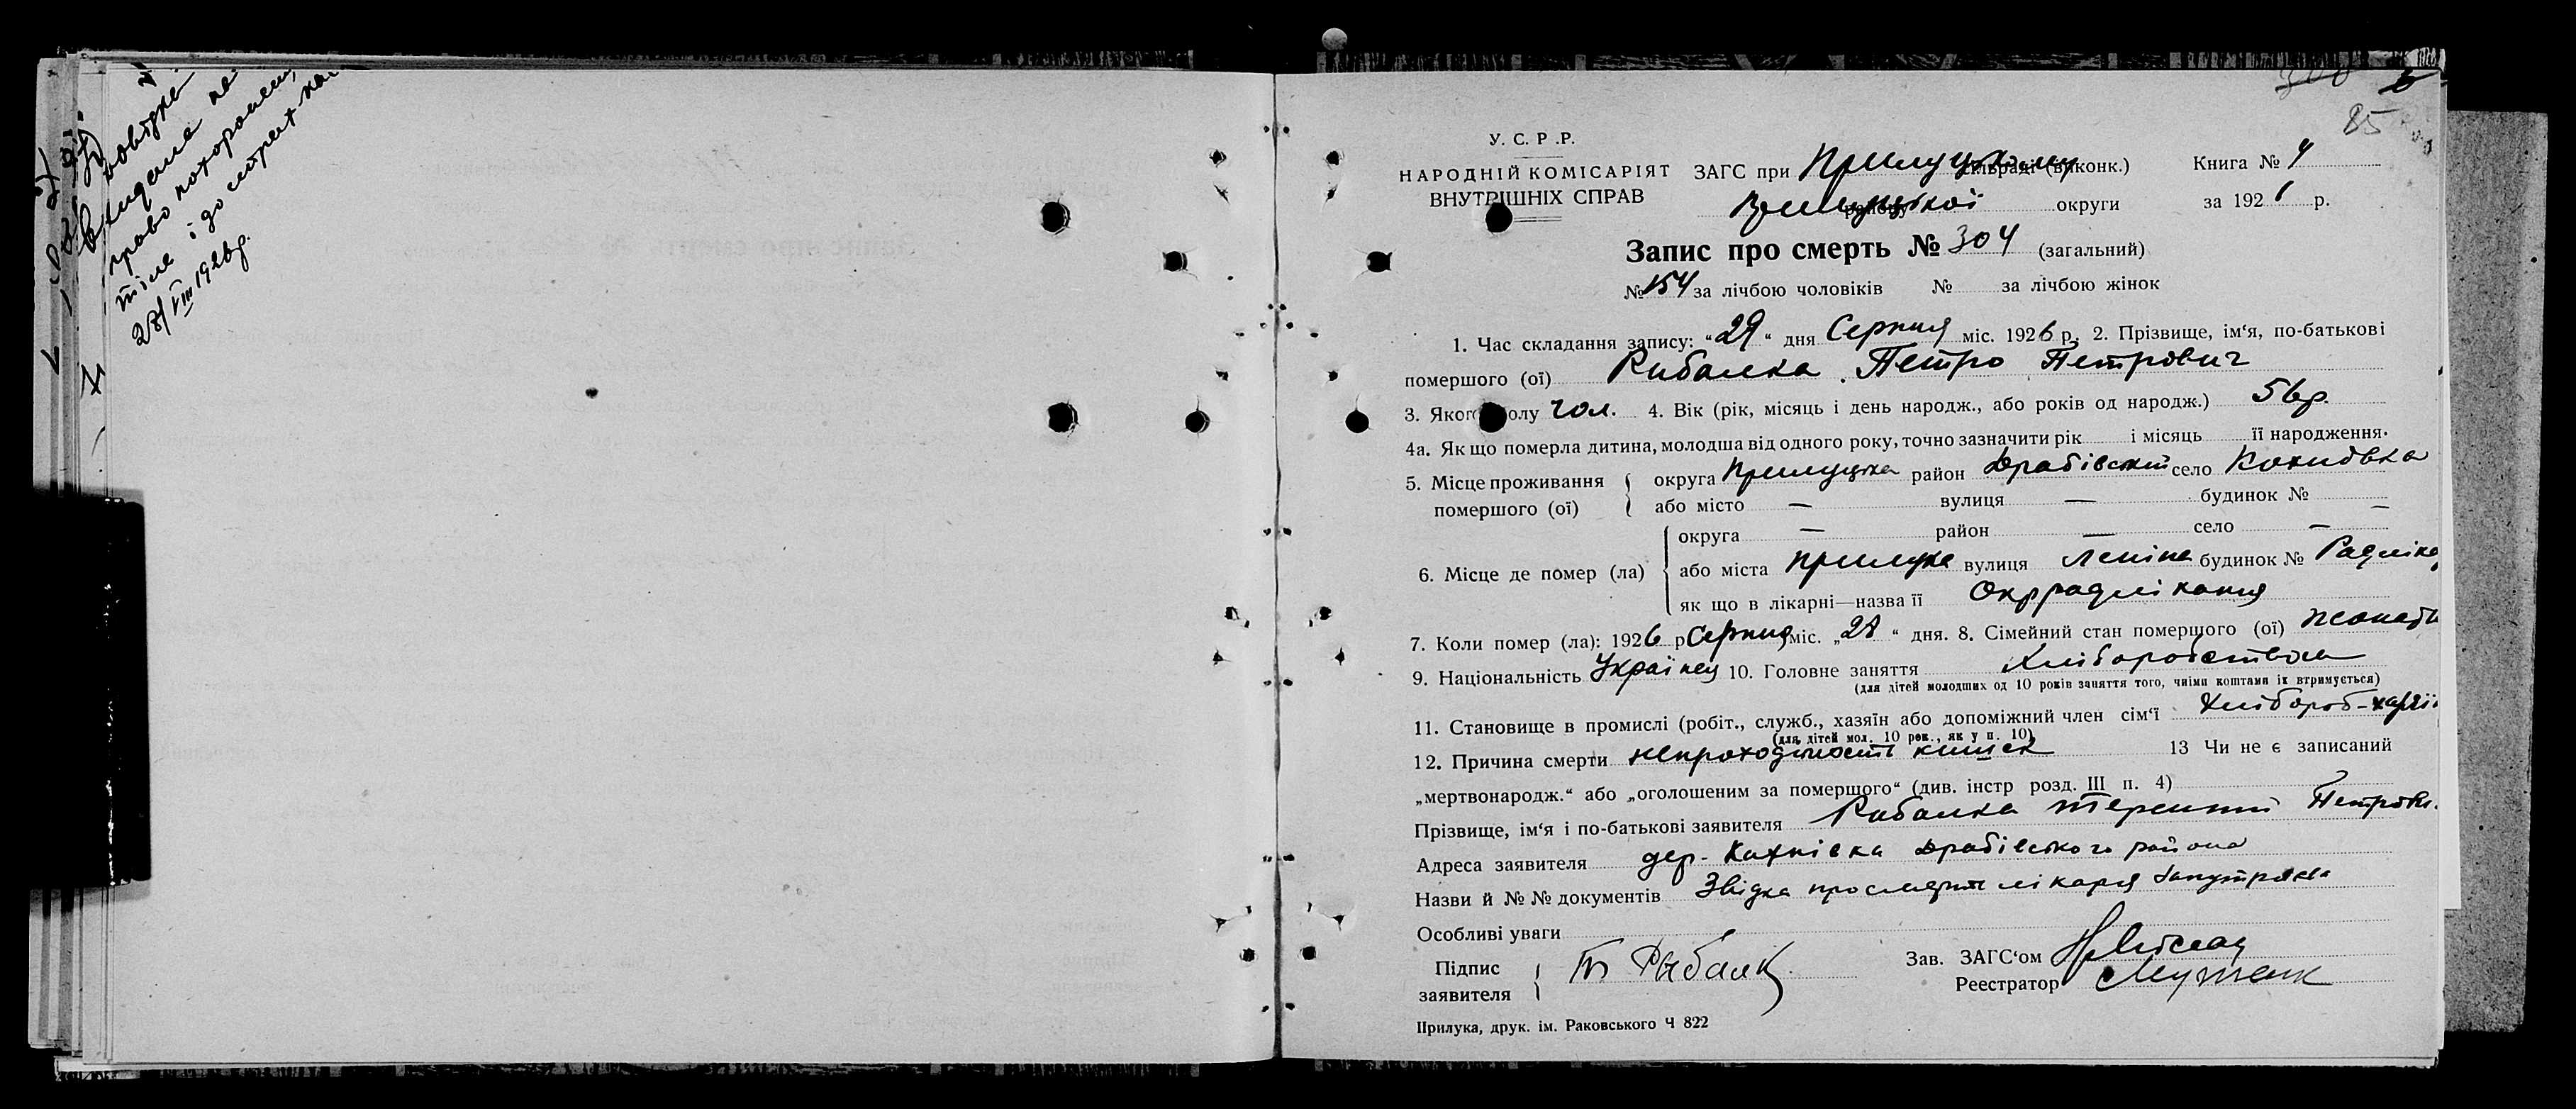 довідка
видана на
право похоронення
тіла і до страхкаси
28/VIII 1926 р.
300
85
У. С. Р. Р.
НАРОДНІЙ КОМІСАРІЯТ
ВНУТРІШНІХ СПРАВ
ЗАГС при Прилуцькому сільраді (виконк.) Книга № 4
району Прилуцької округи за 1926 р.
Запис про смерть № 304 (загальний)
№ 154 за лічбою чоловіків № за лічбою жінок
1. Час складання запису: “29“ дня Серпня міс. 1926 р. 2. Прізвище, ім‘я, по-батькові
помершого (ої) Рибалка Петро Петрович
3. Якого полу чол. 4. Вік (рік, місяць і день народж., або років од народж.) 56 р.
4а. Як що померла дитина, молодша від одного року, точно зазначити рік і місяць її народження.
5. Місце проживання помершого (ої) округа Прилуцька район Драбівський село Кохнівка
або місто — вулиця — будинок № —
6. Місце де помер (ла) округа — район — село —
або міста Прилука вулиця Леніна будинок № Радліка
як що в лікарні—назва її Окррадлікарня
7. Коли помер (ла): 1926 р Серпня міс. „28“ дня. 8. Сімейний стан помершого (ої) жонати
9. Національність Українец 10. Головне заняття Хліборобство
(для дітей молодших од 10 років заняття того, чиїми коштами їх втримується)
11. Становище в промислі (робіт., служб., хазяїн або допоміжний член сім‘ї Хлібороб-хазяїн
(для дітей мол. 10 рок., як у п. 10)
12. Причина смерти непроходимость кишек 13 Чи не є записаний
„мертвонародж.“ або „оголошеним за помершого“ (див. інстр розд. III п. 4)
Прізвище, ім‘я і по-батькові заявителя Рибалка Терентий Петров.
Адреса заявителя дер. Кахнівка Драбівського района
Назви й №№ документів Звідка про смерть лікаря
Особливі уваги
Підпис заявителя Т Рыбалк
Зав. ЗАГС‘ом
Реєстратор
Прилука, друк. ім. Раковського Ч 822